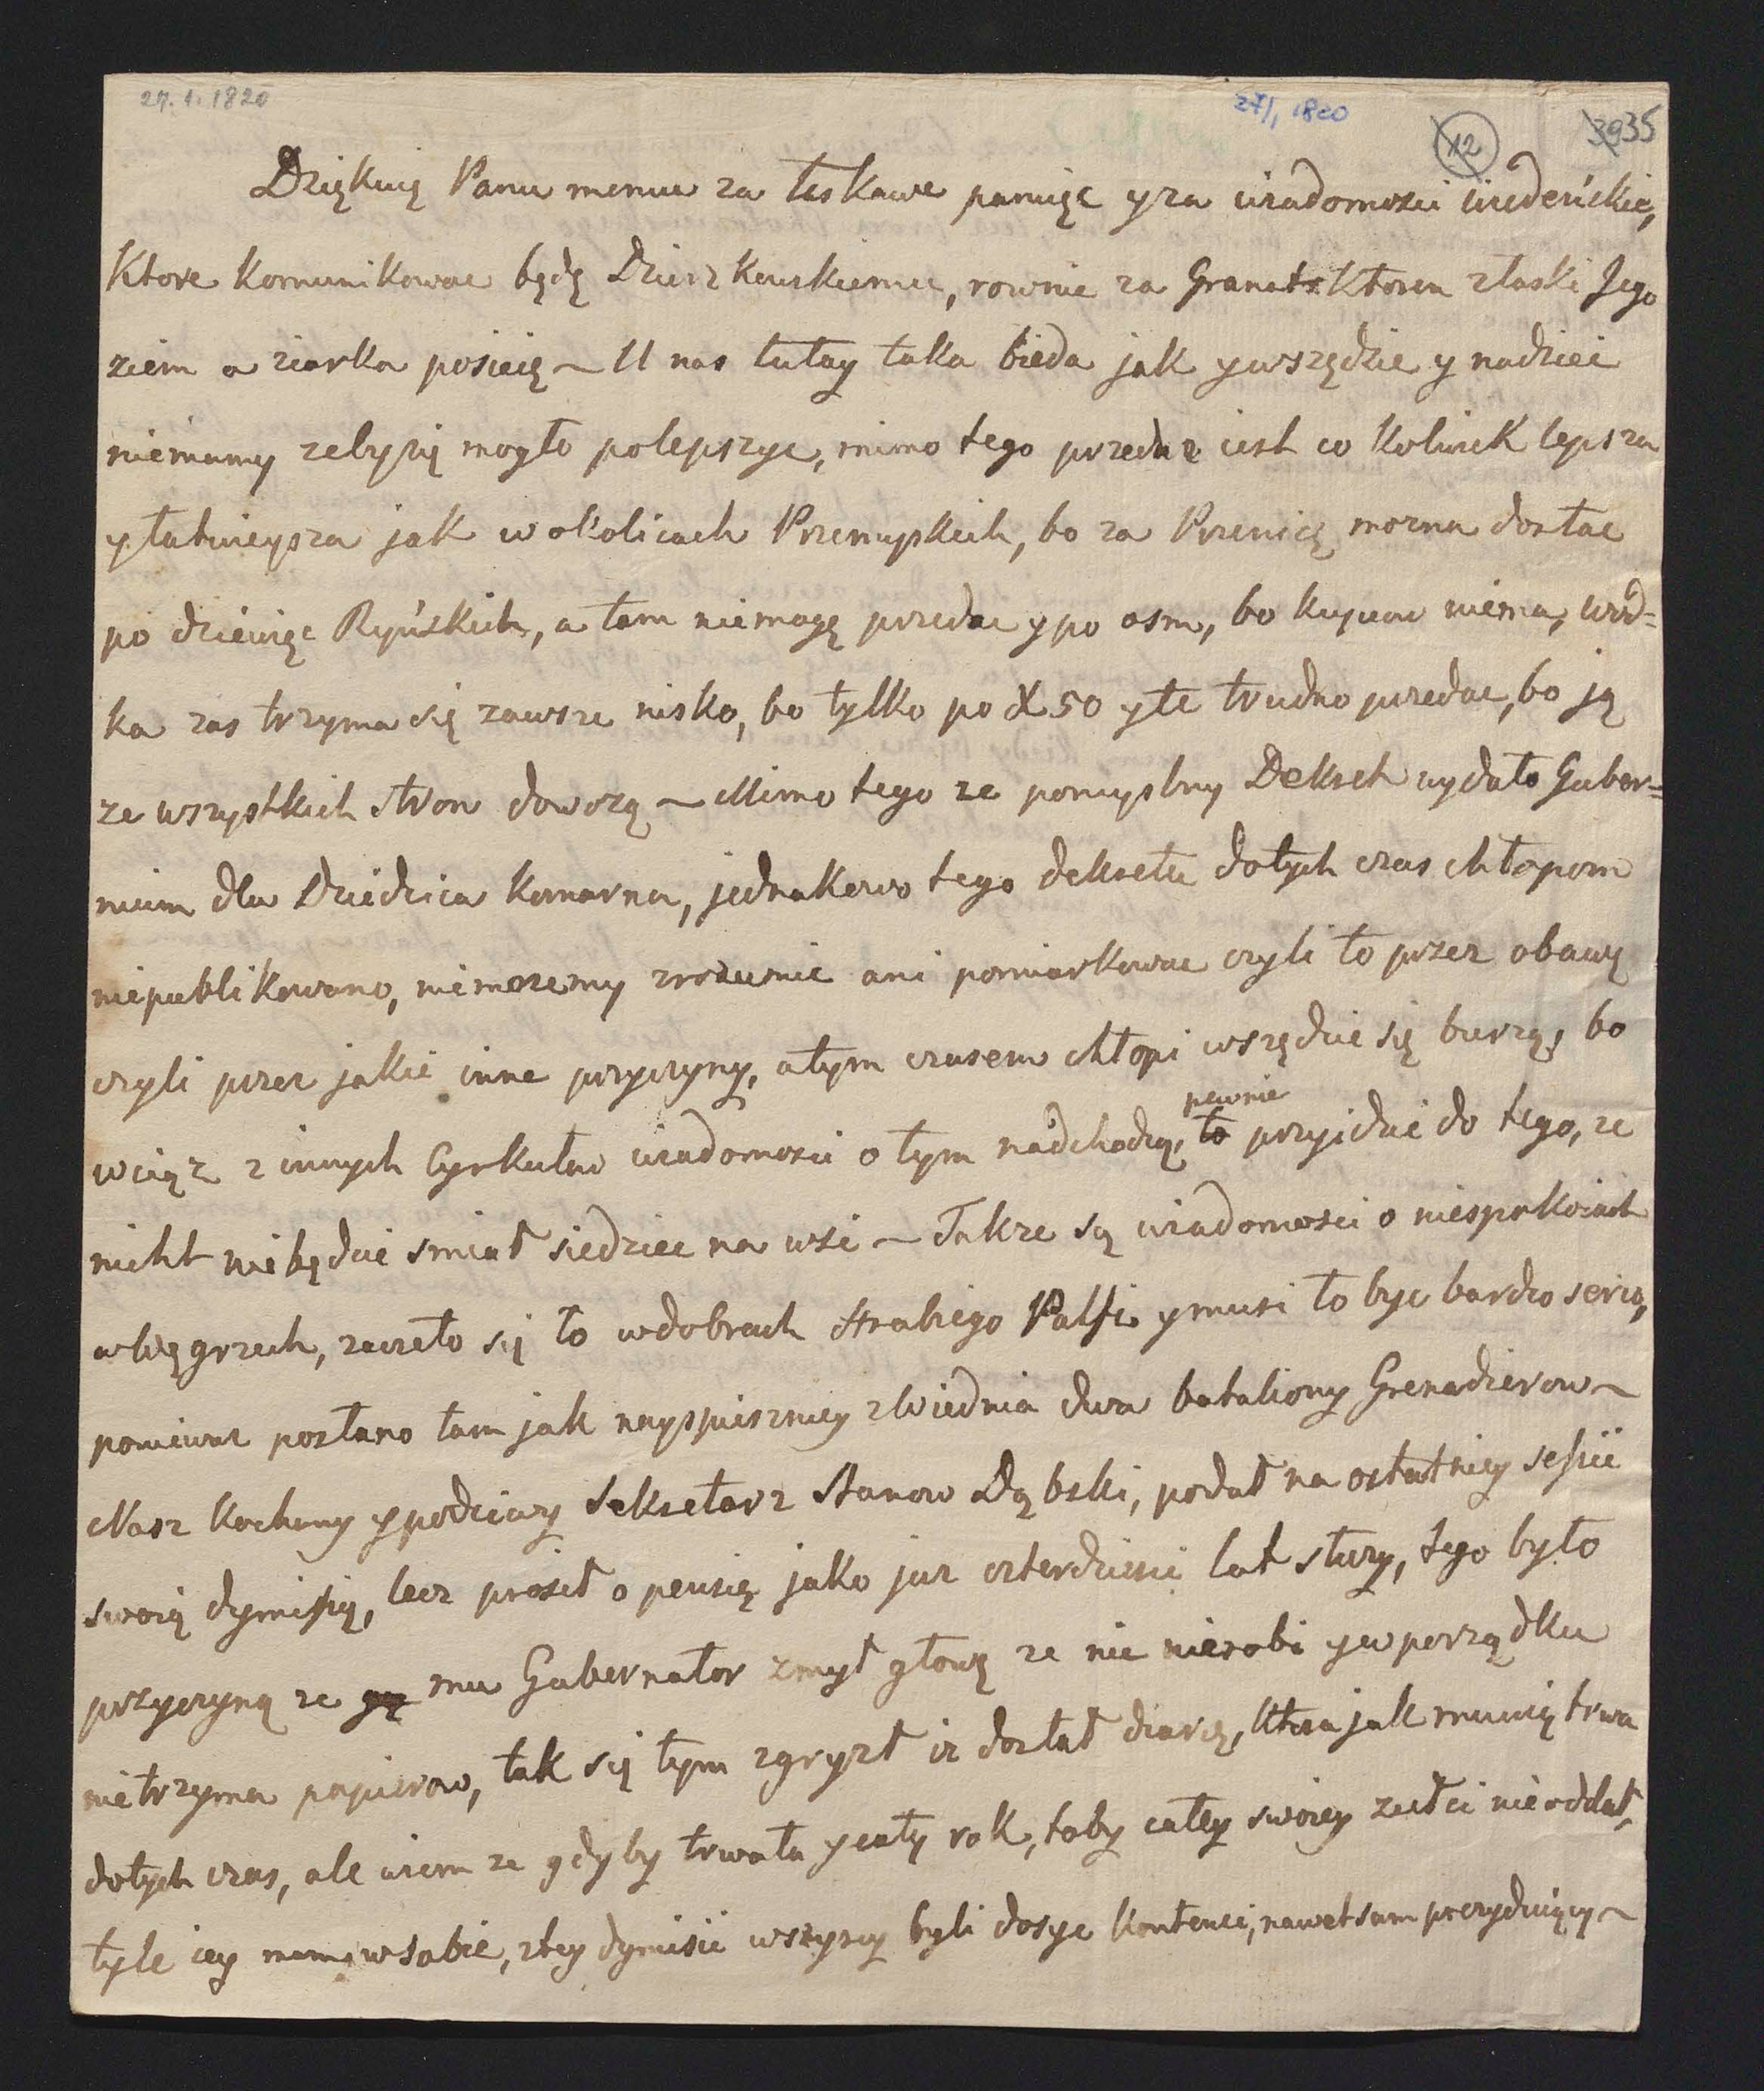 27. 1. 1820
27/1 1820
12
3935
Dziękuię Panu memu za łaskawe pamięc y za wiadomosci wiedeńskie,
Ktore komunikowac będę Dzierzkowskiemu, rownie za Granat Ktoren z łaski Jego
ziem a ziarka posieię ~ U nas tutay taka bieda jak y wszędzie y nadziei
niemamy zeby się mogło polepszyc, mimo tego przedaz iest co kolwiek lepsza
y łatwieysza jak w okolicach Przemyskich, bo za Przenicę mozna dostac
po dziewięc Ryńskich, a tam niemogę przedac y po osm, bo kupcow niema, wód=
ka zas trzyma się zawsze nisko, bo tylko po X 50 y te trudno przedac, bo ją
ze wszystkich stron dowozą ~ Mimo tego ze pomyslny Dekret wydało Guber=
nium dla Dziedzica Komarna, jednakowo tego dekretu dotych czas chłopom
niepublikowano, niemozemy zrozumiec ani pomiarkowac czyli to przez obawę
czyli przez jakie inne przyczyny, a tym czasem chłopi wszędzie się burzą, bo
wciąz z innych Cyrkułow wiadomosci o tym nadchodzą, to pewnie przyidzie do tego, ze
nicht niebędzie smiał siedziec na wsi ~ Takze są wiadomosci o niespokoiach
w Węgrzech, zaczeło się to w dobrach Hrabiego Palfi y musi to byc bardzo serio,
poniewaz posłano tam jak nayspieszniey z Wiednia dwa bataliony Grenadierow ~
Nasz kochany y podczciwy Sekretarz Stanow Dąbski, podał na ostatniey sessii
swoię dymissię, lecz prosił o pensię jako juz czterdziesci lat słuzy, tego było
przyczyną ze gę mu Gubernator zmył głowę ze nic nierobi y w porządku
nietrzyma papierow, tak się tym zgryzł iz dostał diarię, ktora jak mowią trwa
dotych czas, ale wiem ze gdyby trwała y cały rok, toby całey swoiey zołci nieoddał,
tyle iey ma w sobie, z tey dymisii wszyscy byli dosyc kontenci, nawet sam prezyduiący ~